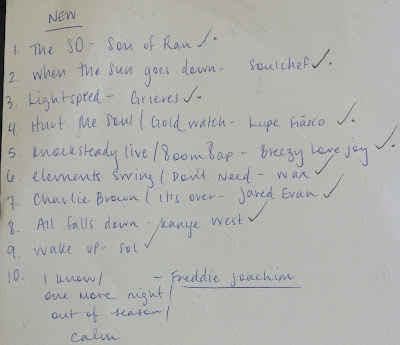 NEW
1. The SO - Son of Ran ✓.
2. When the sun goes down - Soulchef ✓.
3. Lightspeed - Grieves ✓.
4. Hurt Me Soul / Gold Watch - Lupe Fiasco ✓.
5. Knocksteady live / Boom Bap - Breezy Lovejoy ✓.
6. Elements Swing / Don't Need - Wax ✓
7. Charlie Brown / It's over - Jared Evan ✓
8. All falls down - Kanye West ✓
9. Wake up - Sol ✓
10. I know / - Freddie Joachim
one more night /
out of season /
Calm